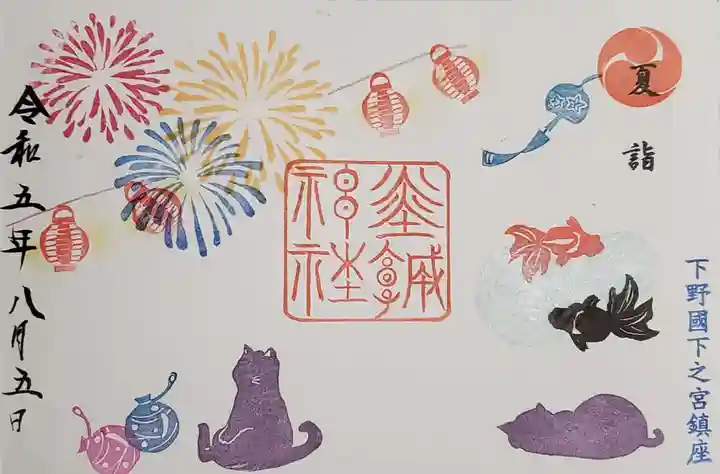 夏
詣
下野國下之宮鎮座
神社
令和五年八月五日